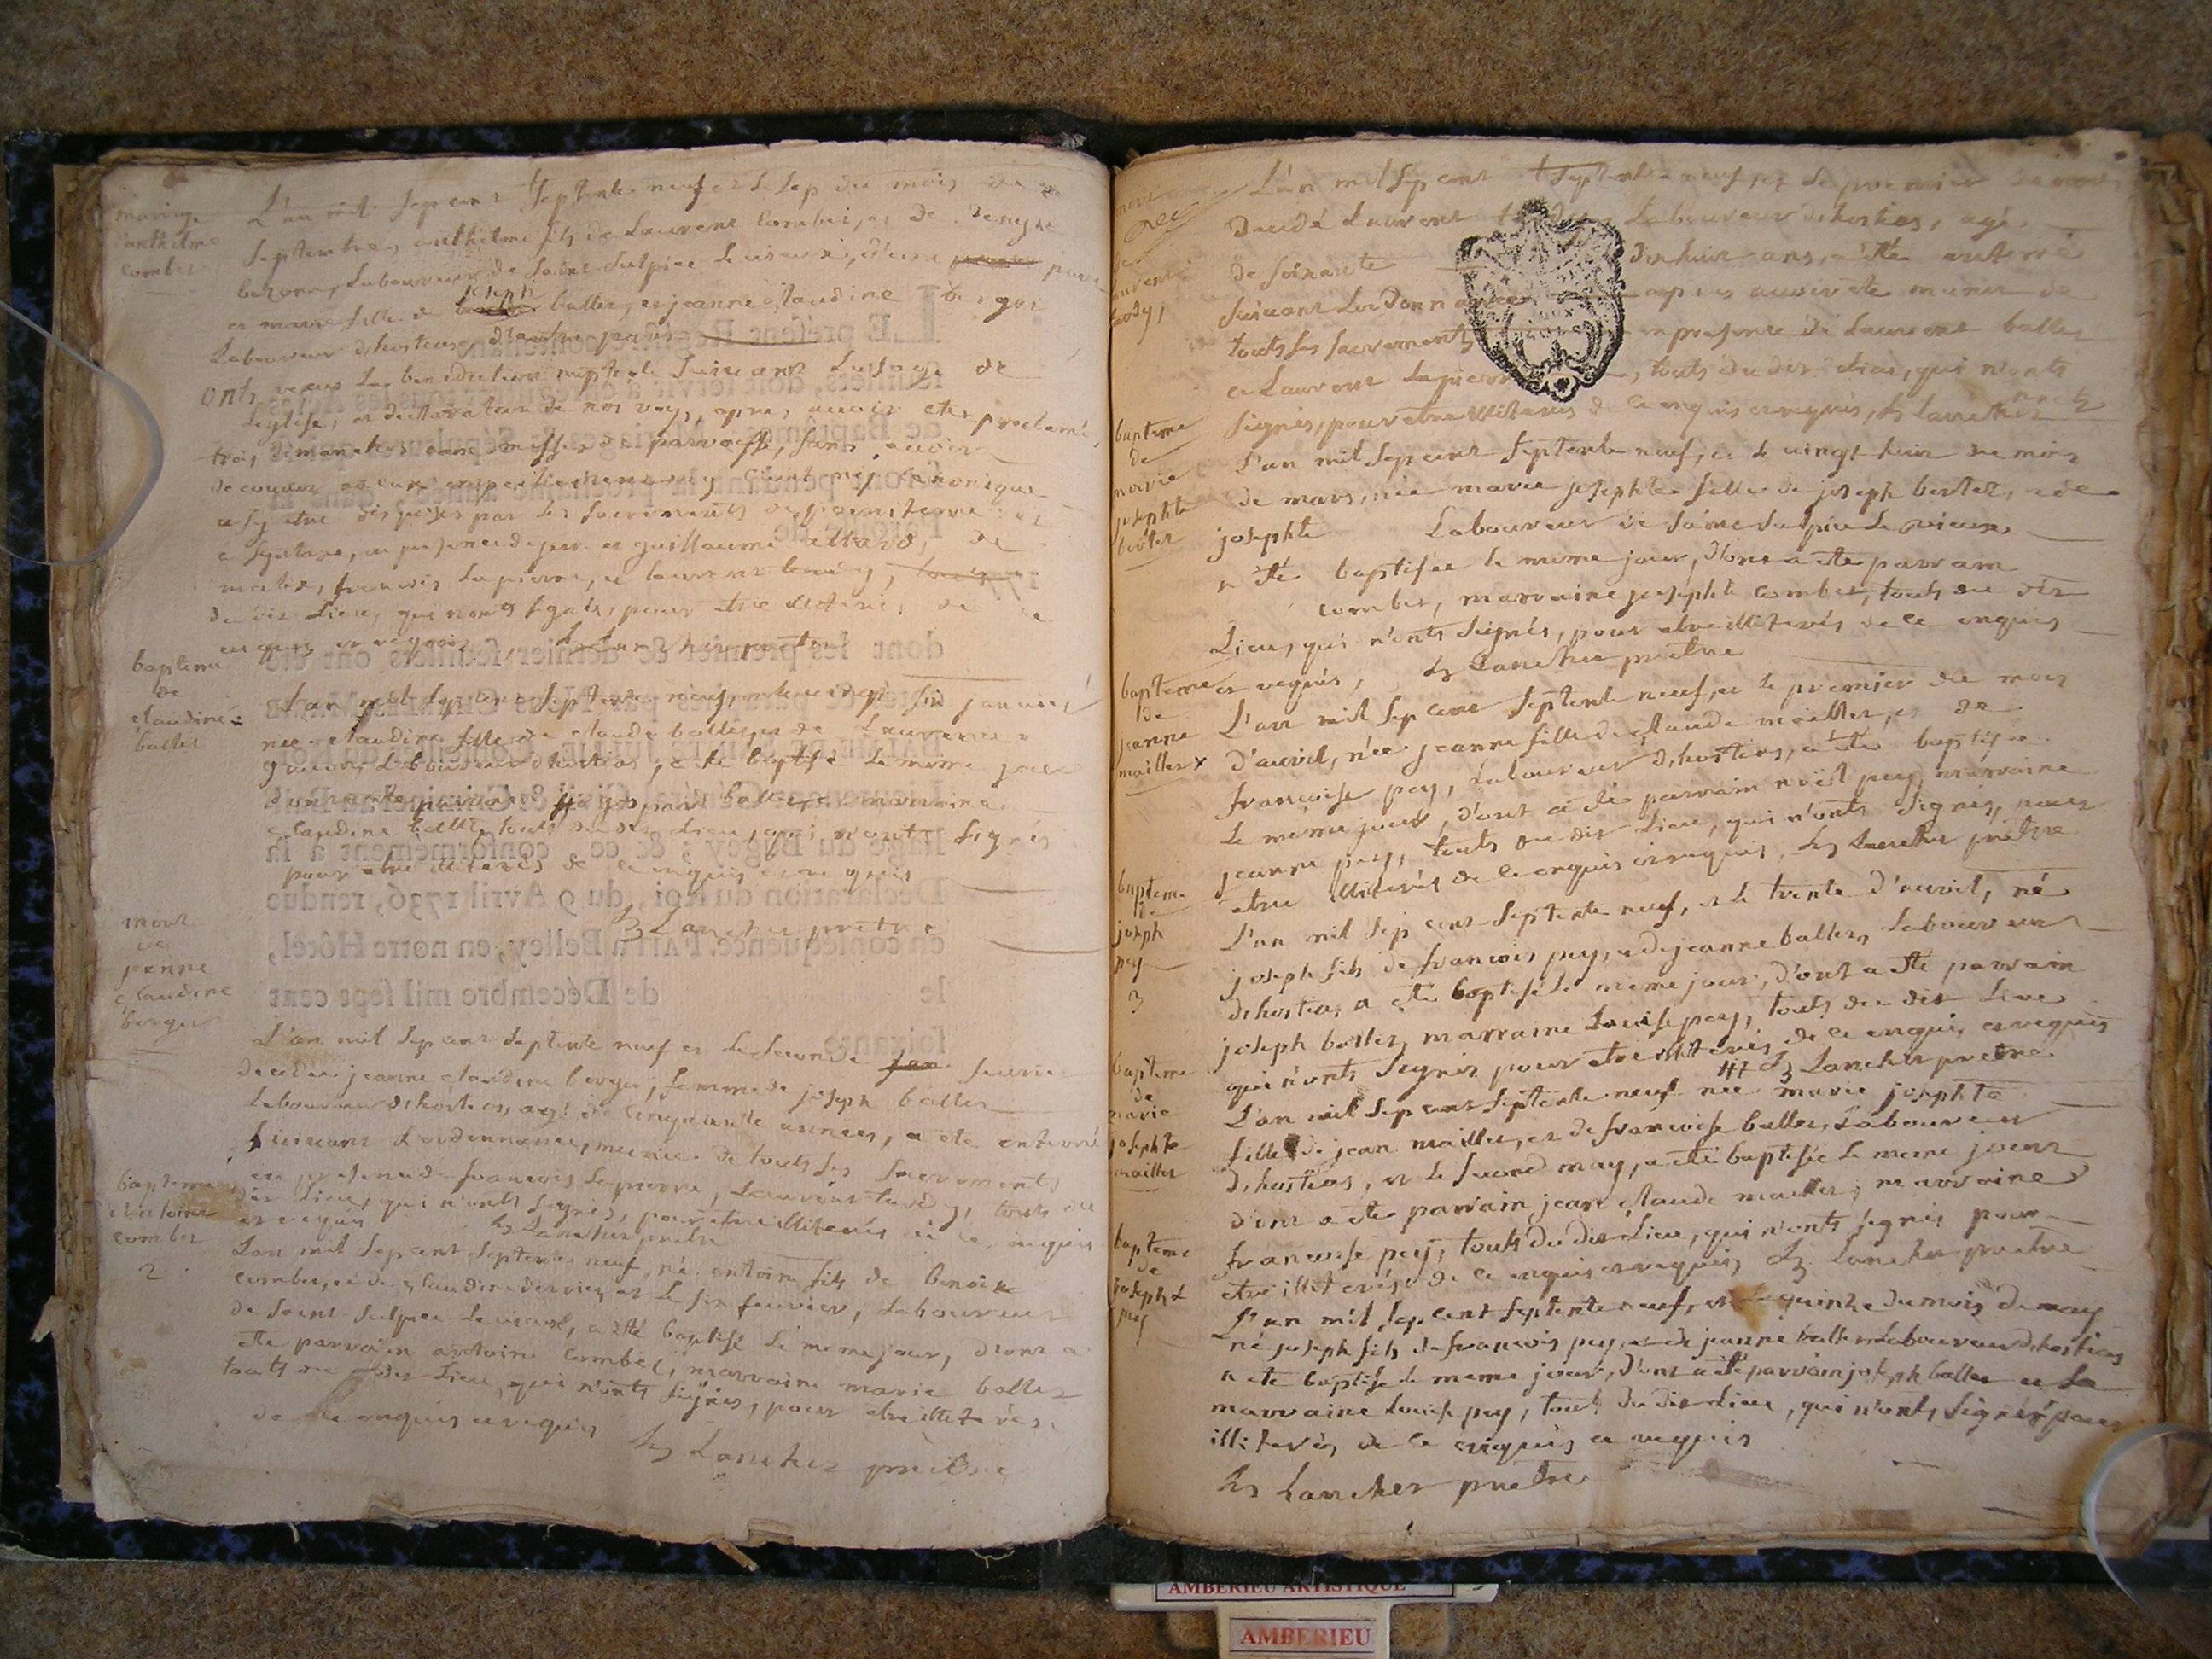 mariage
d'anthelme
combet
L'an mil sep cent septente neuf et le sep du mois de
septembre, anthelme fils de Laurent combet, et de
Laboureur de saint sulpice le vieux, d'une part
et marie fille de joseph ballet, et jeanne claudine berger
Laboureur d'hostias, d'autre part
onts reçus la benediction nuptiale suivant l'usage de
l'eglise, et declaration de nos roys, apres avoir etes proclamé
trois dimanches dans messes de parroisse, sans avoir
decouver aucun empechement ny civil ny canonique
et s'y etre disposés par les sacrements de penitence et
guillaume
francois Lapierre, et laurent
du dit Lieu, qui n'onts signés, pour etre illiterés de ce
enquis et requis, Lancher pretre
bapteme
de
claudine
ballet
L'an mil sep cent septente neuf, et le vingt six janvier
née claudine fille de claude ballet, et de
Laboureur d'hostias, a eté baptisé le meme jour
d'ont a eté parrain ballet, et marraine
claudine ballet, touts du dit Lieu, qui n'onts signés
pour etre illiterés de ce enquis et requis
Lancher pretre
mort
de
jeanne
claudine
berger
L'an mil sep cent septente neuf et le second fevrier
decedée jeanne claudine berger, femme de joseph ballet
Laboureur d'hostias, agé de cinquante années, a eté enterré
suivant L'ordonnance, munie de touts ses sacrements
en presence de francois Lapierre, Laurent tardy, touts du
dit Lieu, qui n'onts signés, pour etre illiterés de ce enquis
et requis Lancher pretre
bapteme
d'antoine
combet
2
L'an mil sep cent septente neuf, né antoine fils de benoit
combet, et de claudine et le six fevrier, Laboureur
de saint sulpice le vieux, a eté baptisé le meme jour, d'ont a
eté parrain antoine combet, marraine marie ballet
touts du dit Lieu, qui n'onts signés, pour etre illiterés
de ce enquis et requis
Lancher pretre
mort
de
laurent
tardy
L'an mil sep cent septente neuf, et le premier du mois
Decedé Laurent tardy Laboureur d'hostias, agé
de soixante dix huit ans, a eté enterré
suivant L'ordonnance apres avoir eté munis de
touts ses sacrements en presence de Laurent ballet
et Laurent Lapierre, touts du dit Lieu, qui n'onts
signés, pour etre illiterés de ce enquis et requis, Lancher
bapteme
de
marie
josephte
L'an mil sep cent septente neuf, et le vingt huit du mois
de mars, née marie josephte fille de joseph et de
josephte Laboureur de saint sulpice le vieux
a eté baptisée le meme jour, d'ont a eté parrain
combet, marraine josephte combet, touts du dit
Lieu, qui n'onts signés, pour etre illiterés de ce enquis
et requis, Lancher pretre
bapteme
de
jeanne
maillet x
L'an mil sep cent septente neuf, et le premier du mois
d'avril, née jeanne fille de claude maillet, et de
francoise pey, Laboureur d'hostias, a eté baptisée
le meme jour, d'ont a eté parrain noël pey, marraine
jeanne pey, touts du dit Lieu, qui n'onts signés, pour
etre illiterés de ce enquis et requis, Lancher pretre
bapteme
de
joseph
pey
3
L'an mil sep cent septente neuf, et le trente d'avril, né
joseph fils de francois pey, et de jeanne ballet, Laboureur
d'hostias, a eté baptisé le meme jour, d'ont a eté parrain
joseph ballet, marraine Louise pey, touts du dit Lieu
qui n'onts signés pour etre illiterés de ce enquis et requis
Lancher pretre
bapteme
de
marie
josephte
maillet
L'an mil sep cent septente neuf née marie josephte
fille de jean maillet, et de francoise ballet, Laboureur
d'hostias, et le second may, a eté baptisée le meme jour
d'ont a eté parrain jean claude maillet, marraine
francoise pey, touts du dit Lieu, qui n'onts signés pour
etre illiterés de ce enquis et requis, Lancher pretre
bapteme
de
joseph
pey
L'an mil sep cent septente neuf, et le quinze du mois de may
né joseph fils de francois pey, et de jeanne ballet Laboureur d'hostias
a eté baptisé le meme jour, d'ont a eté parrain joseph ballet et la
marraine Louise pey, touts du dit Lieu, qui n'onts signés pour
illiterés de ce enquis et requis
Lancher pretre
AMBERIEU ARTISTIQUE
AMBERIEU